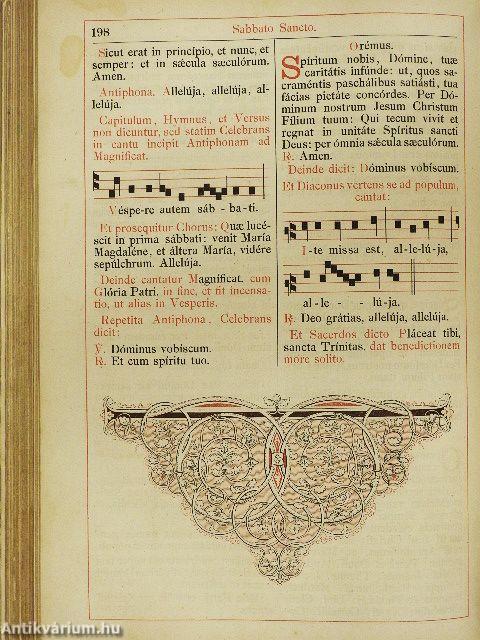 198
Sabbato Sancto.
Sicut erat in princípio, et nunc, et
semper: et in sǽcula sæculórum.
Amen.
Antiphona. Allelúja, allelúja, al-
lelúja.
Capitulum, Hymnus, et Versus
non dicuntur, sed statim Celebrans
in cantu incipit Antiphonam ad
Magnificat.
Véspe-re autem sáb-ba-ti.
Et prosequitur Chorus: Quæ lucé-
scit in prima sábbati: venit María
Magdaléne, et áltera María, vidére
sepúlchrum. Allelúja.
Deinde cantatur Magníficat. cum
Glória Patri, in fine, et fit incensa-
tio, ut alias in Vesperis.
Repetita Antiphona, Celebrans
dicit:
℣. Dóminus vobíscum.
℟. Et cum spíritu tuo.
Orémus.
Spíritum nobis, Dómine, tuæ
caritátis infúnde: ut, quos sa-
craméntis paschálibus satiásti, tua
fácias pietáte concórdes. Per Dó-
minum nostrum Jesum Christum
Fílium tuum: Qui tecum vivit et
regnat in unitáte Spíritus sancti
Deus: per ómnia sǽcula sæculórum.
℟. Amen.
Deinde dicit: Dóminus vobíscum.
Et Diaconus vertens se ad populum,
cantat:
I-te missa est, al-le-lú-ja,
al-le- - -lú-ja.
℟. Deo grátias, allelúja, allelúja.
Et Sacerdos dicto Pláceat tibi,
sancta Trínitas, dat benedictionem
more solito.
Antikvárium.hu